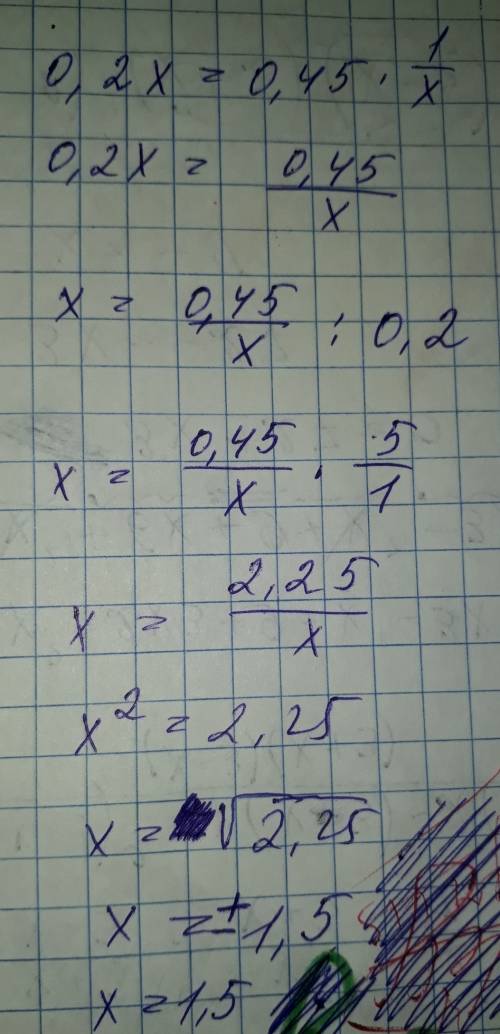 0,2x = 0,45 · 1/x
0,2x = 0,45/x
x = 0,45/x : 0,2
x = 0,45/x · 5/1
x = 2,25/x
x² = 2,25
x = √2,25
x = ±1,5
x = 1,5